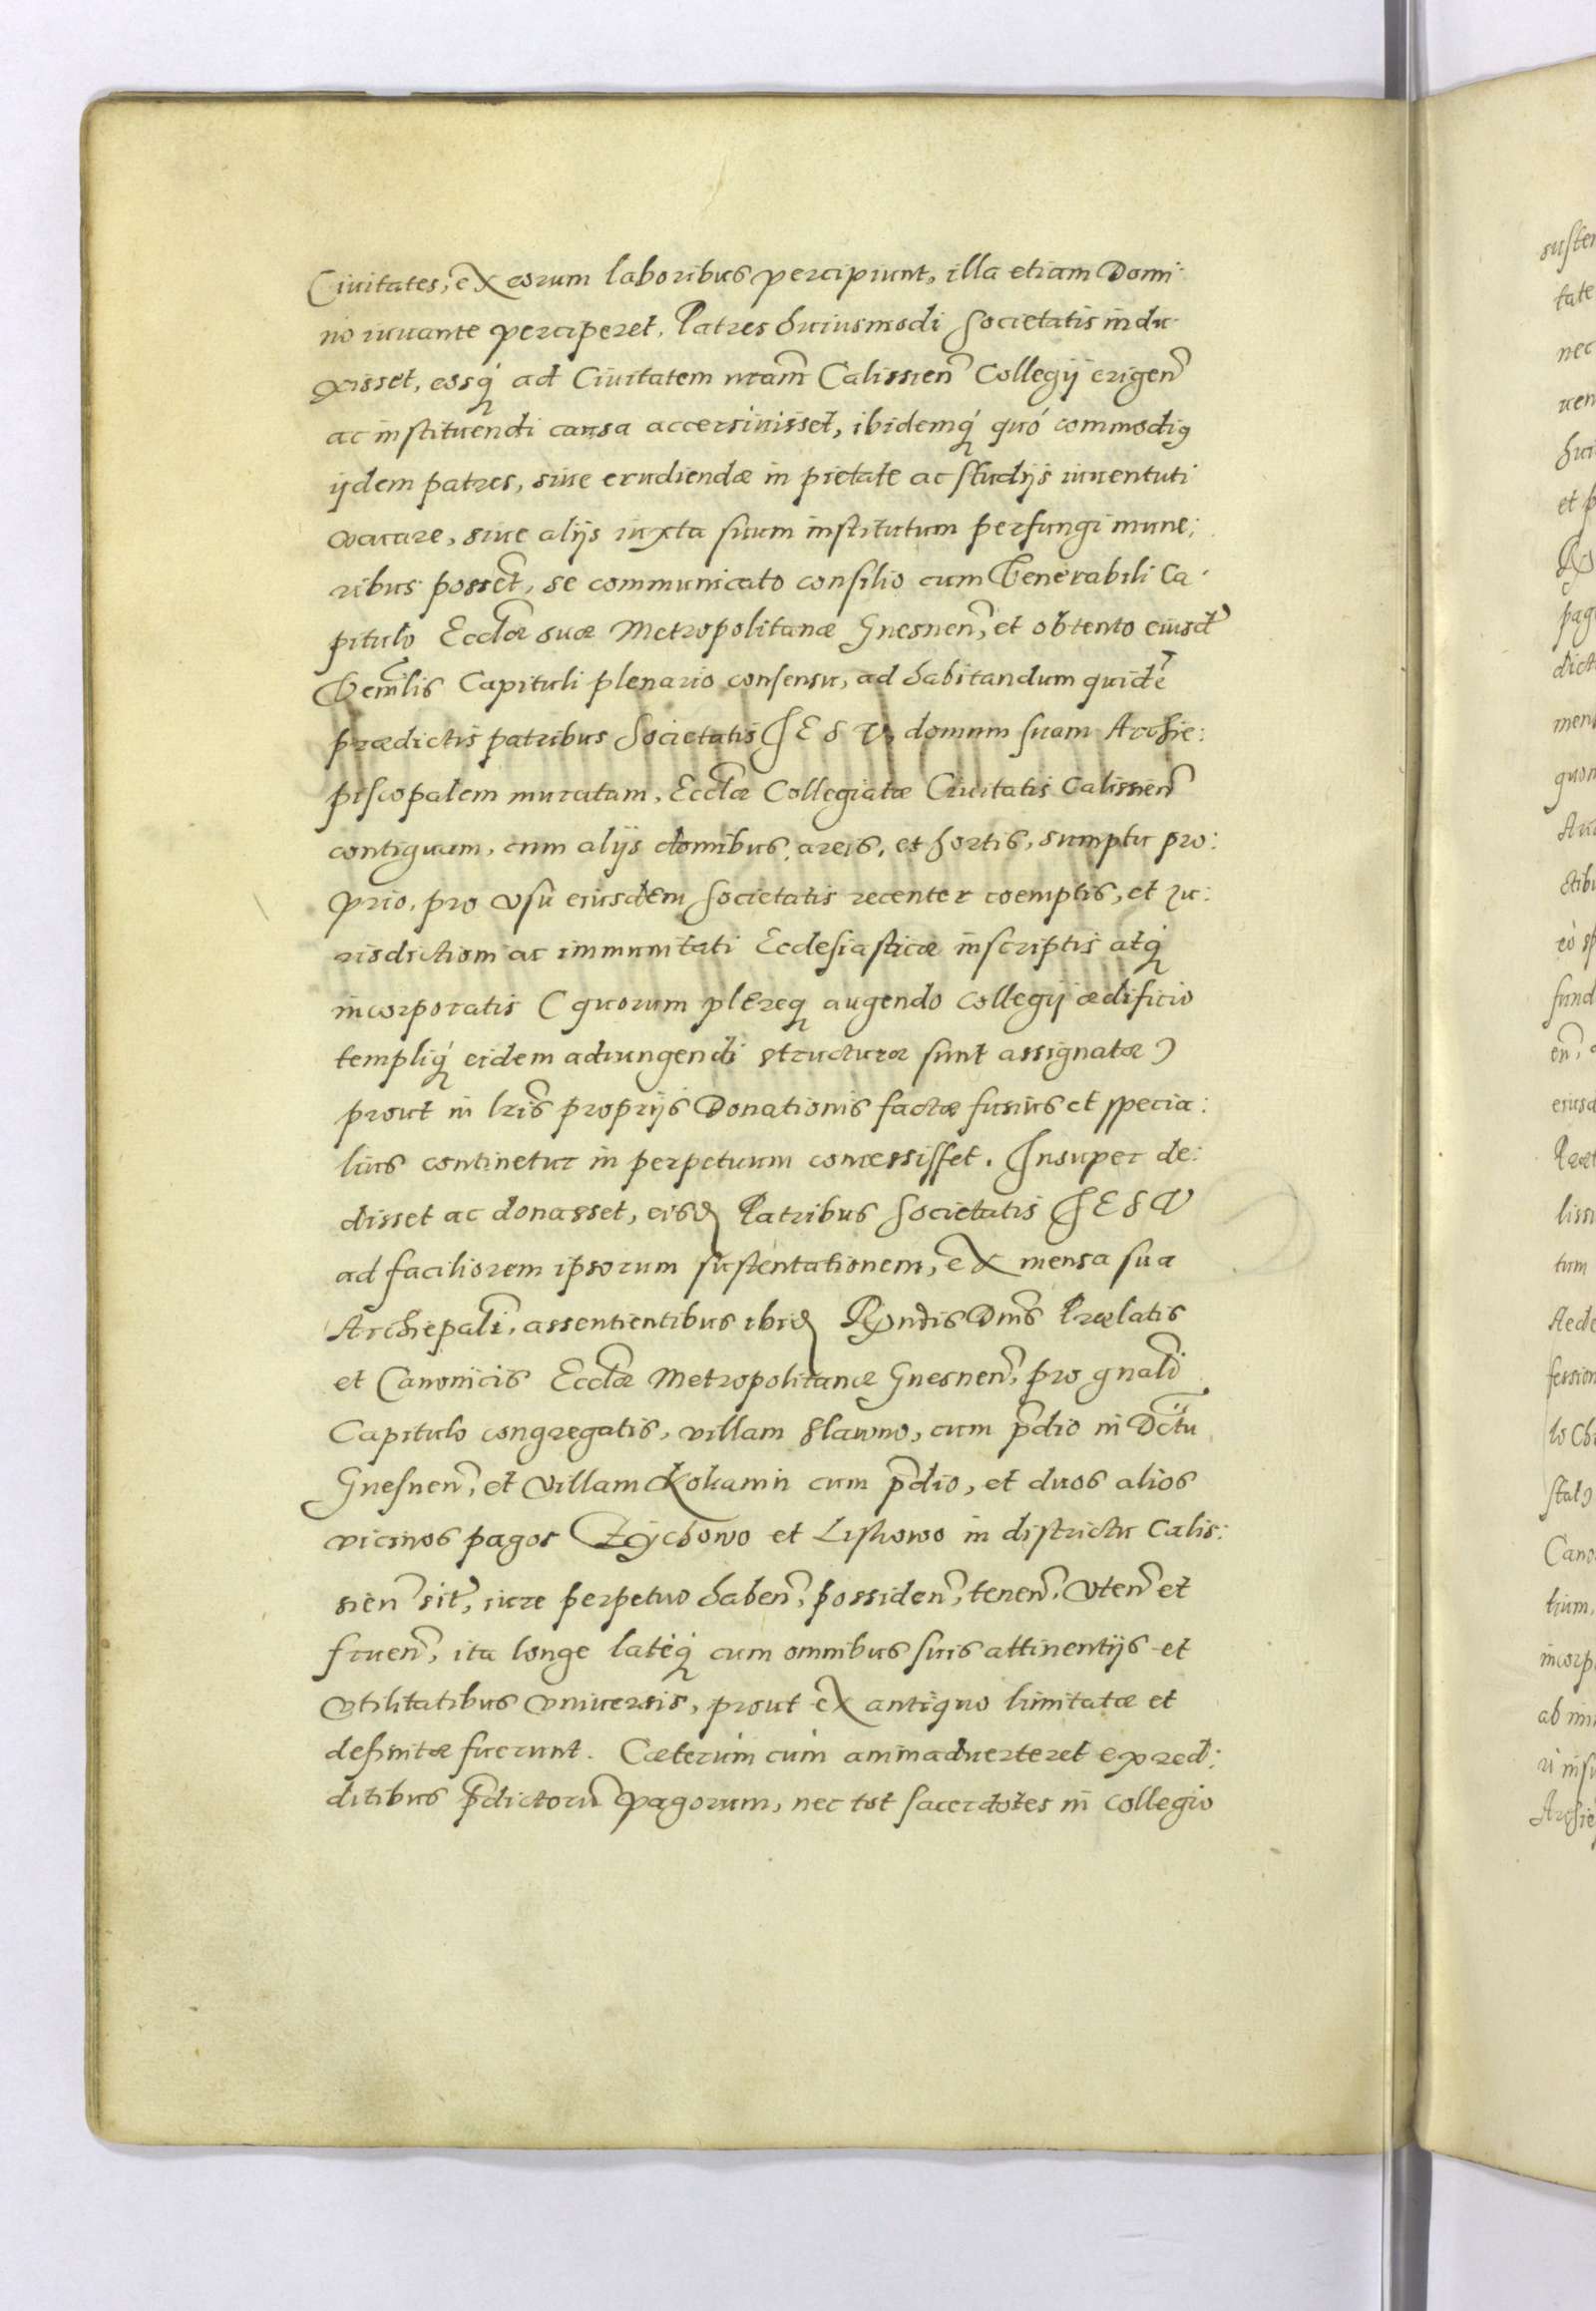 Ciuitates, ex eorum laboribus percipiunt, illa etiam Domi:
no iuuante perciperet, Patres huiusmodi Societatis indu:
xisset, eosq́ ad Ciuitatem nr̃am Calissień Collegij erigeñ
ac instituendi causa accersiuisset, ibidemq́ quó commodiꝰ
ijdem patres, siue erudiendæ in pietate ac studijs iuuentuti
vacare, siue alijs iuxta suum institutum perfungi mune:
ribus possẽt, se communicato consilio cum Venerabili Ca:
pitulo Eccl̃æ suæ Metropolitanæ Gnesneñ, et obtento eiusd̃
Veñlis Capituli plenario consensu, ad habitandum quidẽ
prædictis patribus Societatis IESV, domum suam Archie:
piscopalem muratam, Eccl̃æ Collegiatæ Ciuitatis Calissieñ
contiguam, cum alijs domibus, areis, et hortis, sumptu pro:
prio, pro vsu eiusdem Societatis recenter coemptis, et iu:
risdictioni ac immunitati Ecclesiasticæ inscriptis atq́
incorporatis (quorum pleræq augendo Collegij ædificio
templiq́ eidem adiungendi structuræ sunt assignatæ)
prout in lr̃is proprijs Donationis factæ fusius et specia:
lius continetur in perpetuum concessisset. Insuper de:
disset ac donasset, eisđ Patribus Societatis IESV
ad faciliorem ipsorum sustentationem, ex mensa sua
Archiepali, assentientibus ibiđ Rñdis Dñis Prælatis
et Canonicis Eccl̃æ Metropolitanæ Gnesneñ, pro gnali
Capitulo congregatis, villam Slawno, cum p̃dio in Dcũ
Gnesneñ, et villam Kokanin cum p̃dio, et duos alios
vicinos pagos Zÿchowo et Liskowo in districtu Calis:
sieñ sit̃, iure perpetuo habeñ, possideñ, teneñ, vteñ et
frueñ, ita longe lateq́ cum omnibus suis attinentijs et
vtilitatibus vniuersis, prout ex antiquo limitatæ et
definitæ fuerunt. Cæterum cum animaduerteret ex red:
ditibus p̃dictorũ pagorum, nec tot sacerdotes in collegio